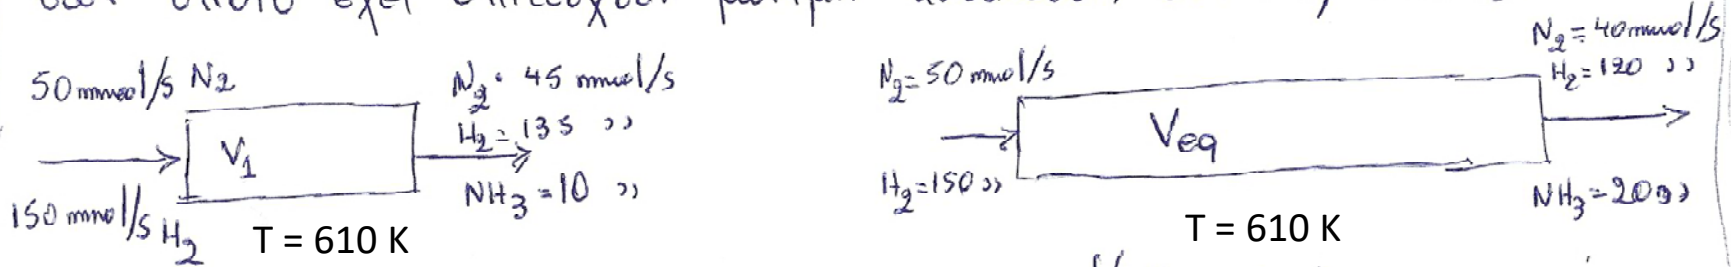 50 mmol/s N2
150 mmol/s H2
V1
T = 610 K
N2 = 45 mmol/s
H2 = 135 ,,
NH3 = 10 ,,
N2 = 50 mmol/s
H2 = 150 ,,
Veq
T = 610 K
N2 = 40 mmol/s
H2 = 120 ,,
NH3 = 20 ,,